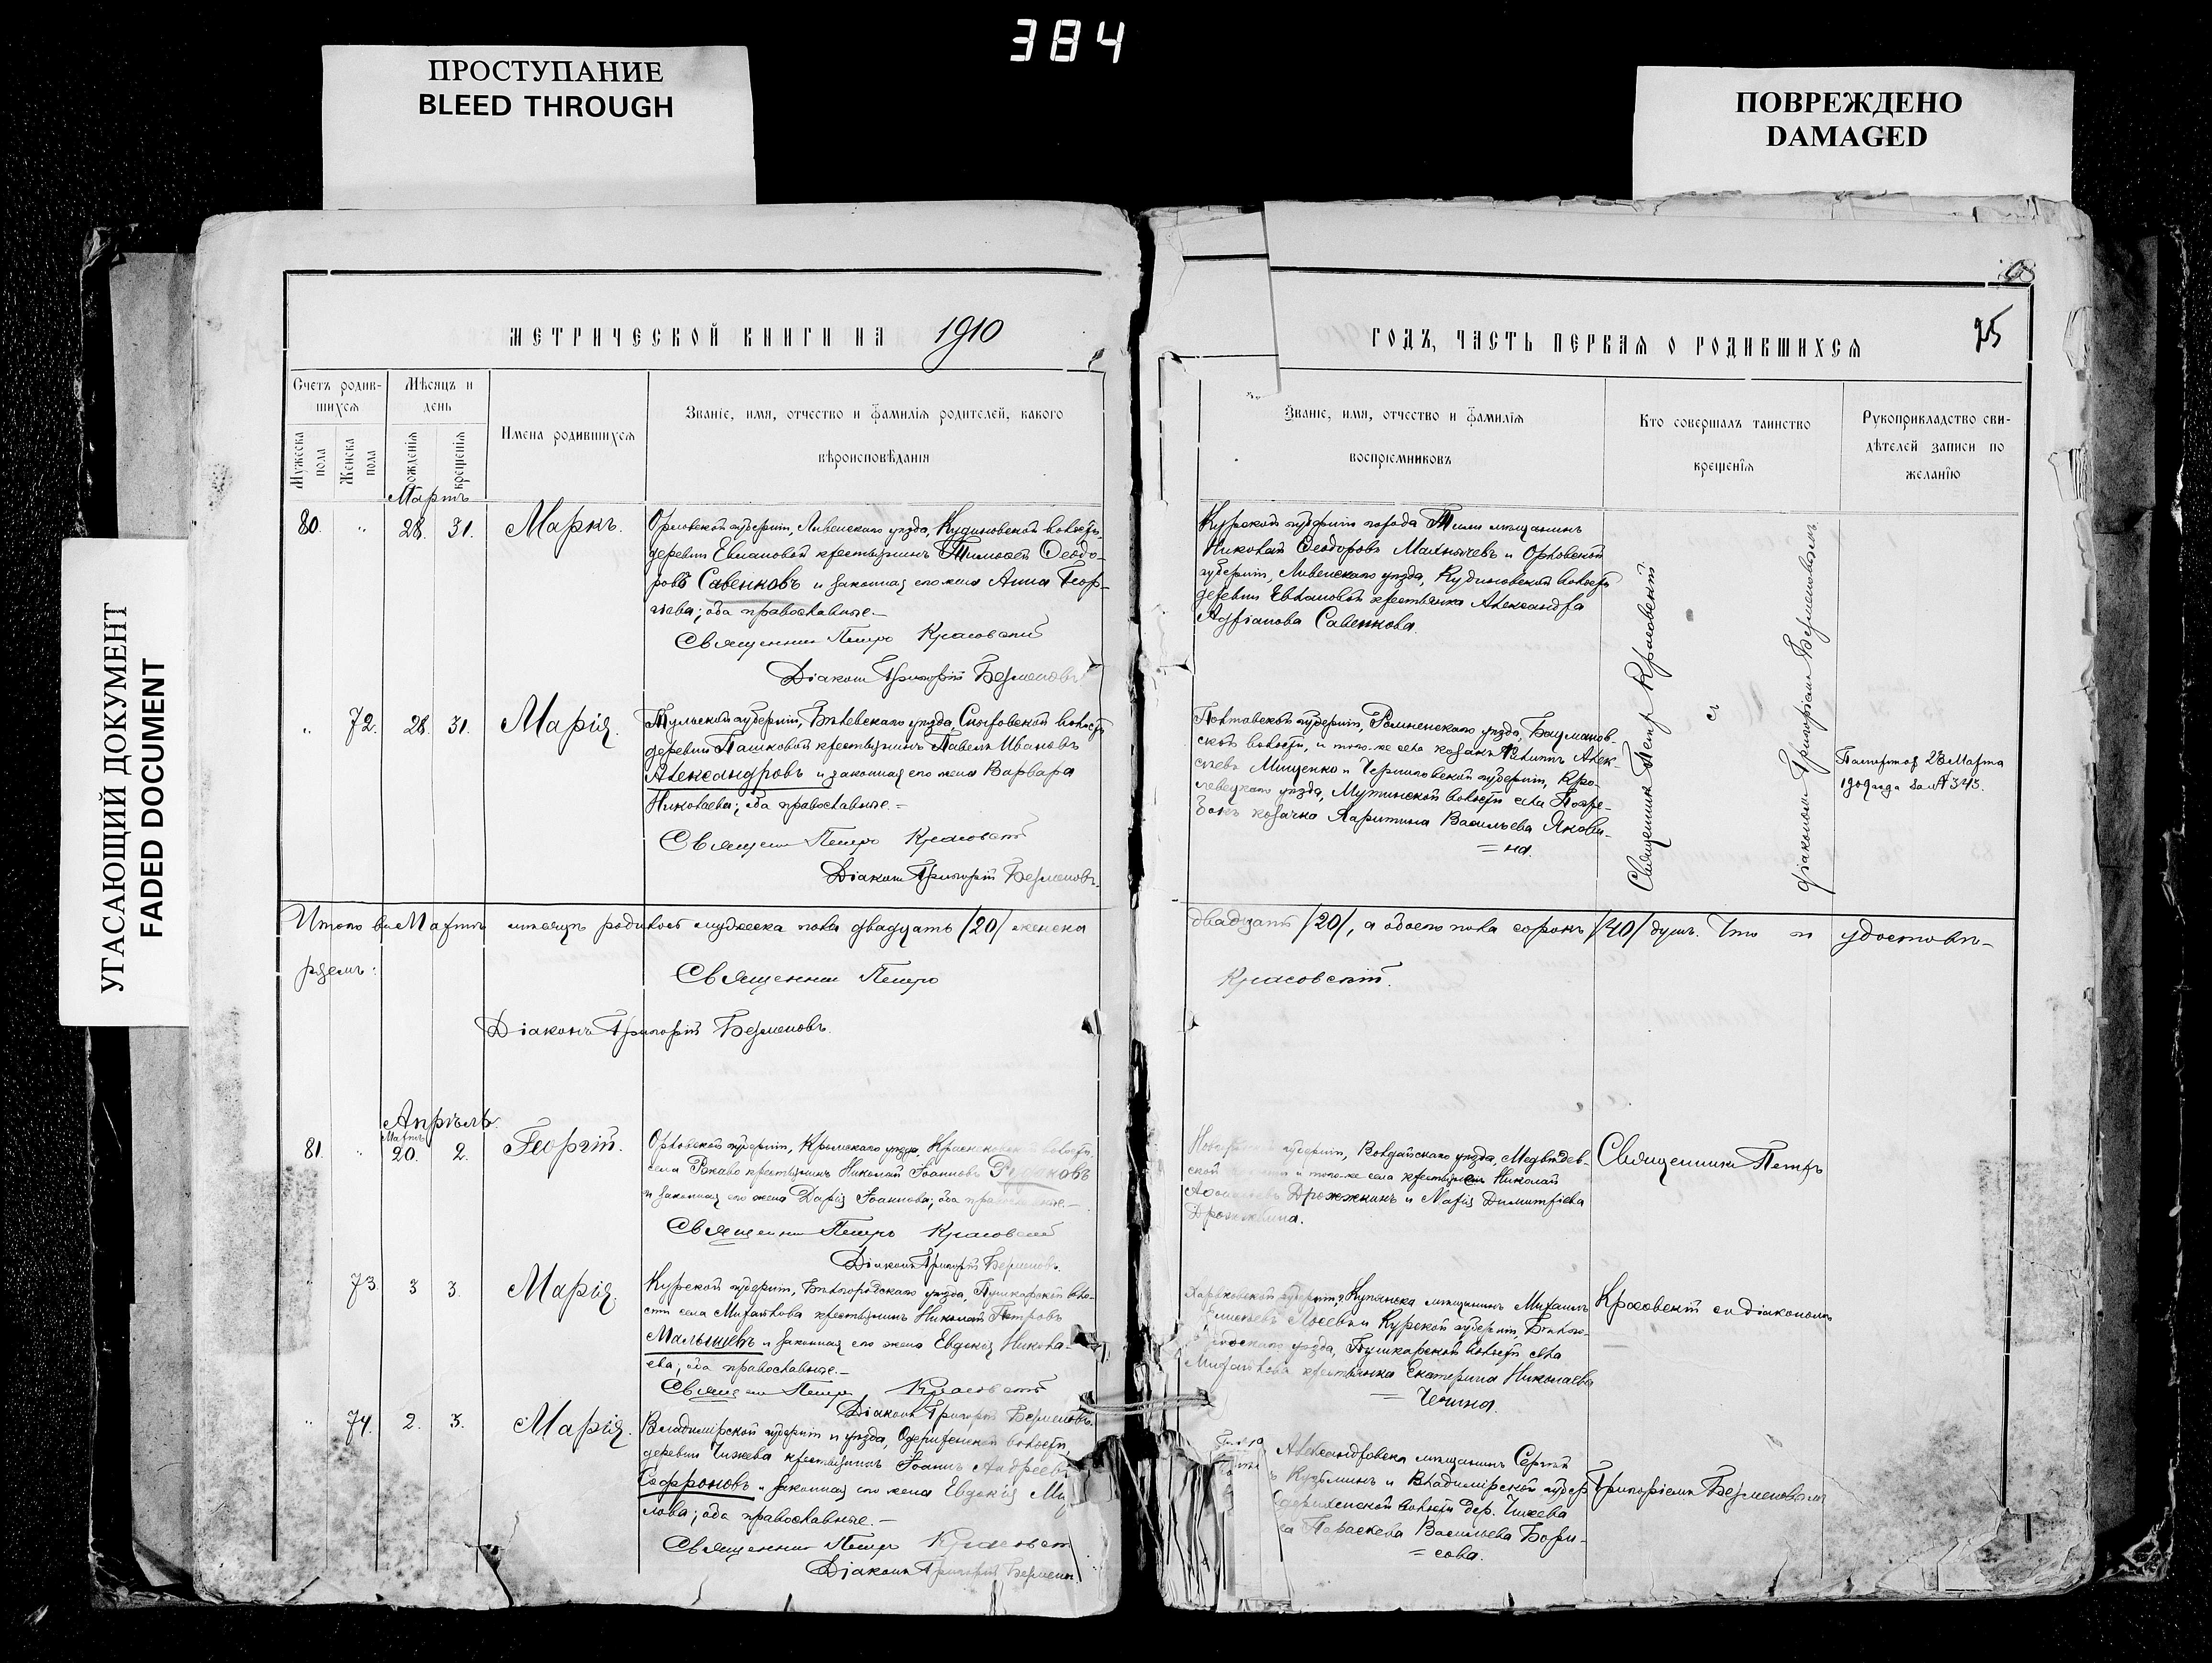 384
ПРОСТУПАНИЕ
BLEED THROUGH
ПОВРЕЖДЕНО
DAMAGED
УГАСАЮЩИЙ ДОКУМЕНТ
FADED DOCUMENT
МЕТРИЧЕСКОЙ КНИГИ НА 1910
Счетъ родив-
шихся
Мужеска
пола
Женска
пола
Мѣсяцъ и
день
рожденія
крещенія
Имена родившихся
Званіе, имя, отчество и фамилія родителей, какого
вѣроисповѣданія
Мартъ
80. " 28. 31. Маркъ.
Орловской губерніи, Ливенскаго уѣзда, Кудиновской волости,
деревни Евлановой крестьянинъ Тимоѳей Ѳеодо-
ровъ Савенковъ и законная его жена Анна Геор-
гіева; оба православные.—
Священникъ Петръ Красовскій
Діаконъ Григорій
" 72. 28. 31. Марія.
Тульской губерніи, Бѣлевскаго уѣзда, волости
деревни Пашковой крестьянинъ Павелъ Ивановъ
Александровъ и законная его жена Варвара
Николаева; оба православные.—
Священникъ Петръ Красовскій
Діаконъ Григорій
Итого въ Мартѣ мѣсяцѣ родилось мужеска пола двадцать /20/ женска
рѣемъ:
Священникъ Петръ
Діаконъ Григорій
Апрѣль.
Мартъ
81. " 20. 2. Георгій.
Орловской губерніи, Кромскаго уѣзда, волости,
села крестьянинъ Николай Іоанновъ
и законная его жена Дарія Іоаннова; оба православные.—
Священникъ Петръ Красовскій
Діаконъ Григорій
" 73. 3 3. Марія.
Курской губерніи, Бѣлгородскаго уѣзда, Пушкарской воло-
сти села Михайлова крестьянинъ Николай Петровъ
Малышевъ и законная его жена Евдокія Никола-
ева; оба православные.—
Священникъ Петръ Красовскій
Діаконъ Григорій
" 74. 2. 3. Марія.
Владимірской губерніи и уѣзда, волости,
деревни Чижева крестьянинъ Іоаннъ Андреевъ
Софроновъ и законная его жена Евдокія
лова; оба православные.—
Священникъ Петръ Красовскій
Діаконъ Григорій
ГОДЪ, ЧАСТЬ ПЕРВАЯ О РОДИВШИХСЯ
25
Званіе, имя, отчество и фамилія
воспріемниковъ
Кто совершалъ таинство
крещенія
Рукоприкладство сви-
дѣтелей записи по
желанію
Курской губерніи города Тима мѣщанинъ
Николай Ѳеодоровъ и Орловской
губерніи, Ливенскаго уѣзда, Кудиновской волости
деревни Евлановой крестьянка Александра
Адріанова Савенкова.
Полтавской губерніи, Роменскаго уѣзда,
ской волости, и того-же села козакъ Алек-
сѣевъ Мищенко и Черниговской губерніи, Кро-
левецкаго уѣзда, Мутинской волости села
козачка Харитина Васильева
= на.
Священникъ Петр Красовскій
съ
діакономъ Григоріемъ
28 Марта
двадцать /20/, а обоего пола сорокъ /40/ душъ. Что и удостовѣ-
Красовскій.
губерніи, Валдайскаго уѣзда, Медвѣдев-
ской и того-же села крестьянинъ Николай
Дрожжинъ и Марія Димитріева
Дрожжина.
Священникъ Петръ
Харьковской губерніи, г. Купянска мѣщанинъ Михаилъ
Лосевъ и Курской губерніи, Бѣлго-
родскаго уѣзда, Пушкарской волости села
Михайлова крестьянка Екатерина Николаева
=
Красовскій съ діакономъ
Александровска мѣщанинъ Сергѣй
Кузьминъ и Владимірской губер
волости дер. Чижева
Параскева Васильева Бори-
= сова.
Григоріемъ